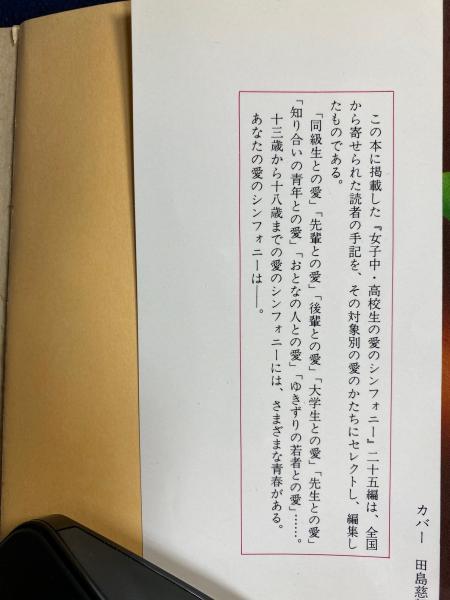 この本に掲載した『女子中・高校生の愛のシンフォニー』二十五編は、全国
から寄せられた読者の手記を、その対象別の愛のかたちにセレクトし、編集し
たものである。
「同級生との愛」「先輩との愛」「後輩との愛」「大学生との愛」「先生との愛」
「知り合いの青年との愛」「おとなの人との愛」「ゆきずりの若者との愛」……。
十三歳から十八歳までの愛のシンフォニーには、さまざまな青春がある。
あなたの愛のシンフォニーは――。
カバー 田島慈